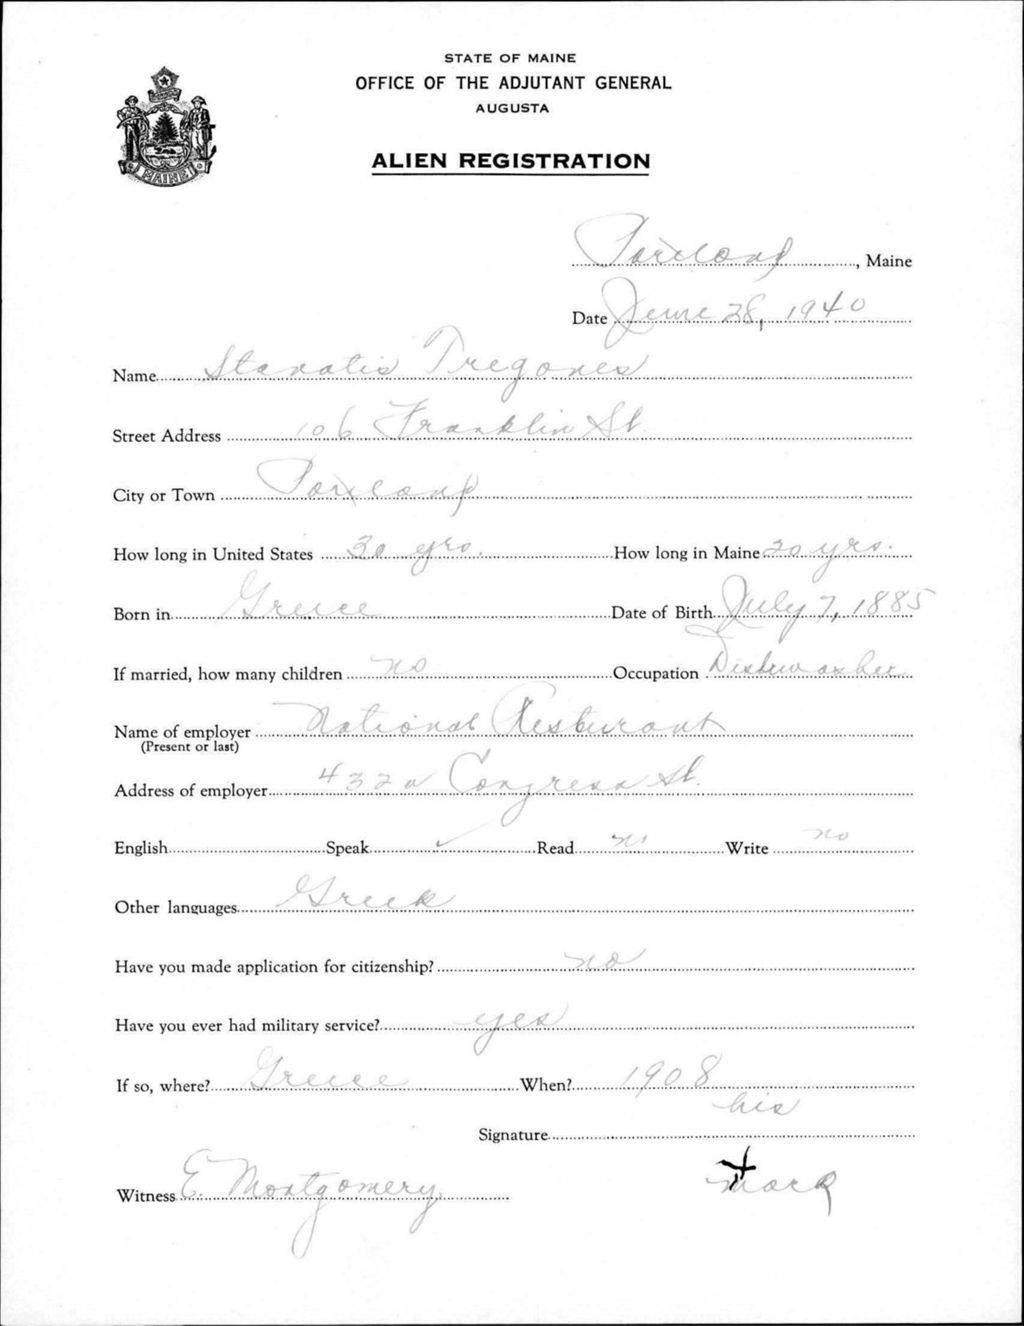 STATE OF MAINE
OFFICE OF THE ADJUTANT GENERAL
AUGUSTA
MAINE
ALIEN REGISTRATION
Portland, Maine
Date June 28, 1940
Name Stanatis Tregones
Street Address 106 Franklin St.
City or Town Portland
How long in United States 30 yrs. How long in Maine 20 yrs.
Born in Greece Date of Birth July 7, 1885
If married, how many children no Occupation Dishwasher
Name of employer National Resturant
(Present or last)
Address of employer 432a Congress St.
English Speak ✓ Read no Write no
Other languages Greek
Have you made application for citizenship? no
Have you ever had military service? yes
If so, where? Greece When? 1908
his
Signature
Witness E. Montgomery X mark